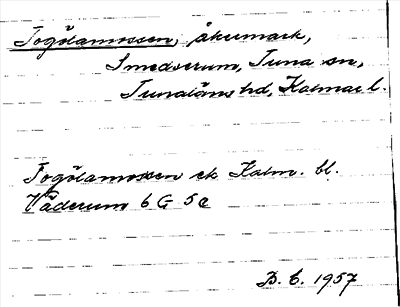 Fogölamossen, åkermark,
Smedserum, Tuna sn,
Tunaläns hd, Kalmar l.
Fogölamossen ek Kalm. bl.
Väderum 6 G 5 e
B. E. 1957